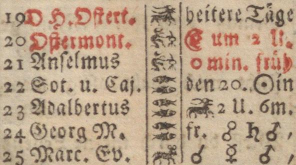 19 D H. Ostert. heitere Täge
20 Ostermont. C um 2 u.
21 Anselmus 0 min. früh
22 Sot. u. Caj. den 20. ☉ in
23 Adalbertus 2 U. 6m.
24 Georg M. fr. ♂ ♄ ♂,
25 Marc. Ev. ♂ ☿ ♂,